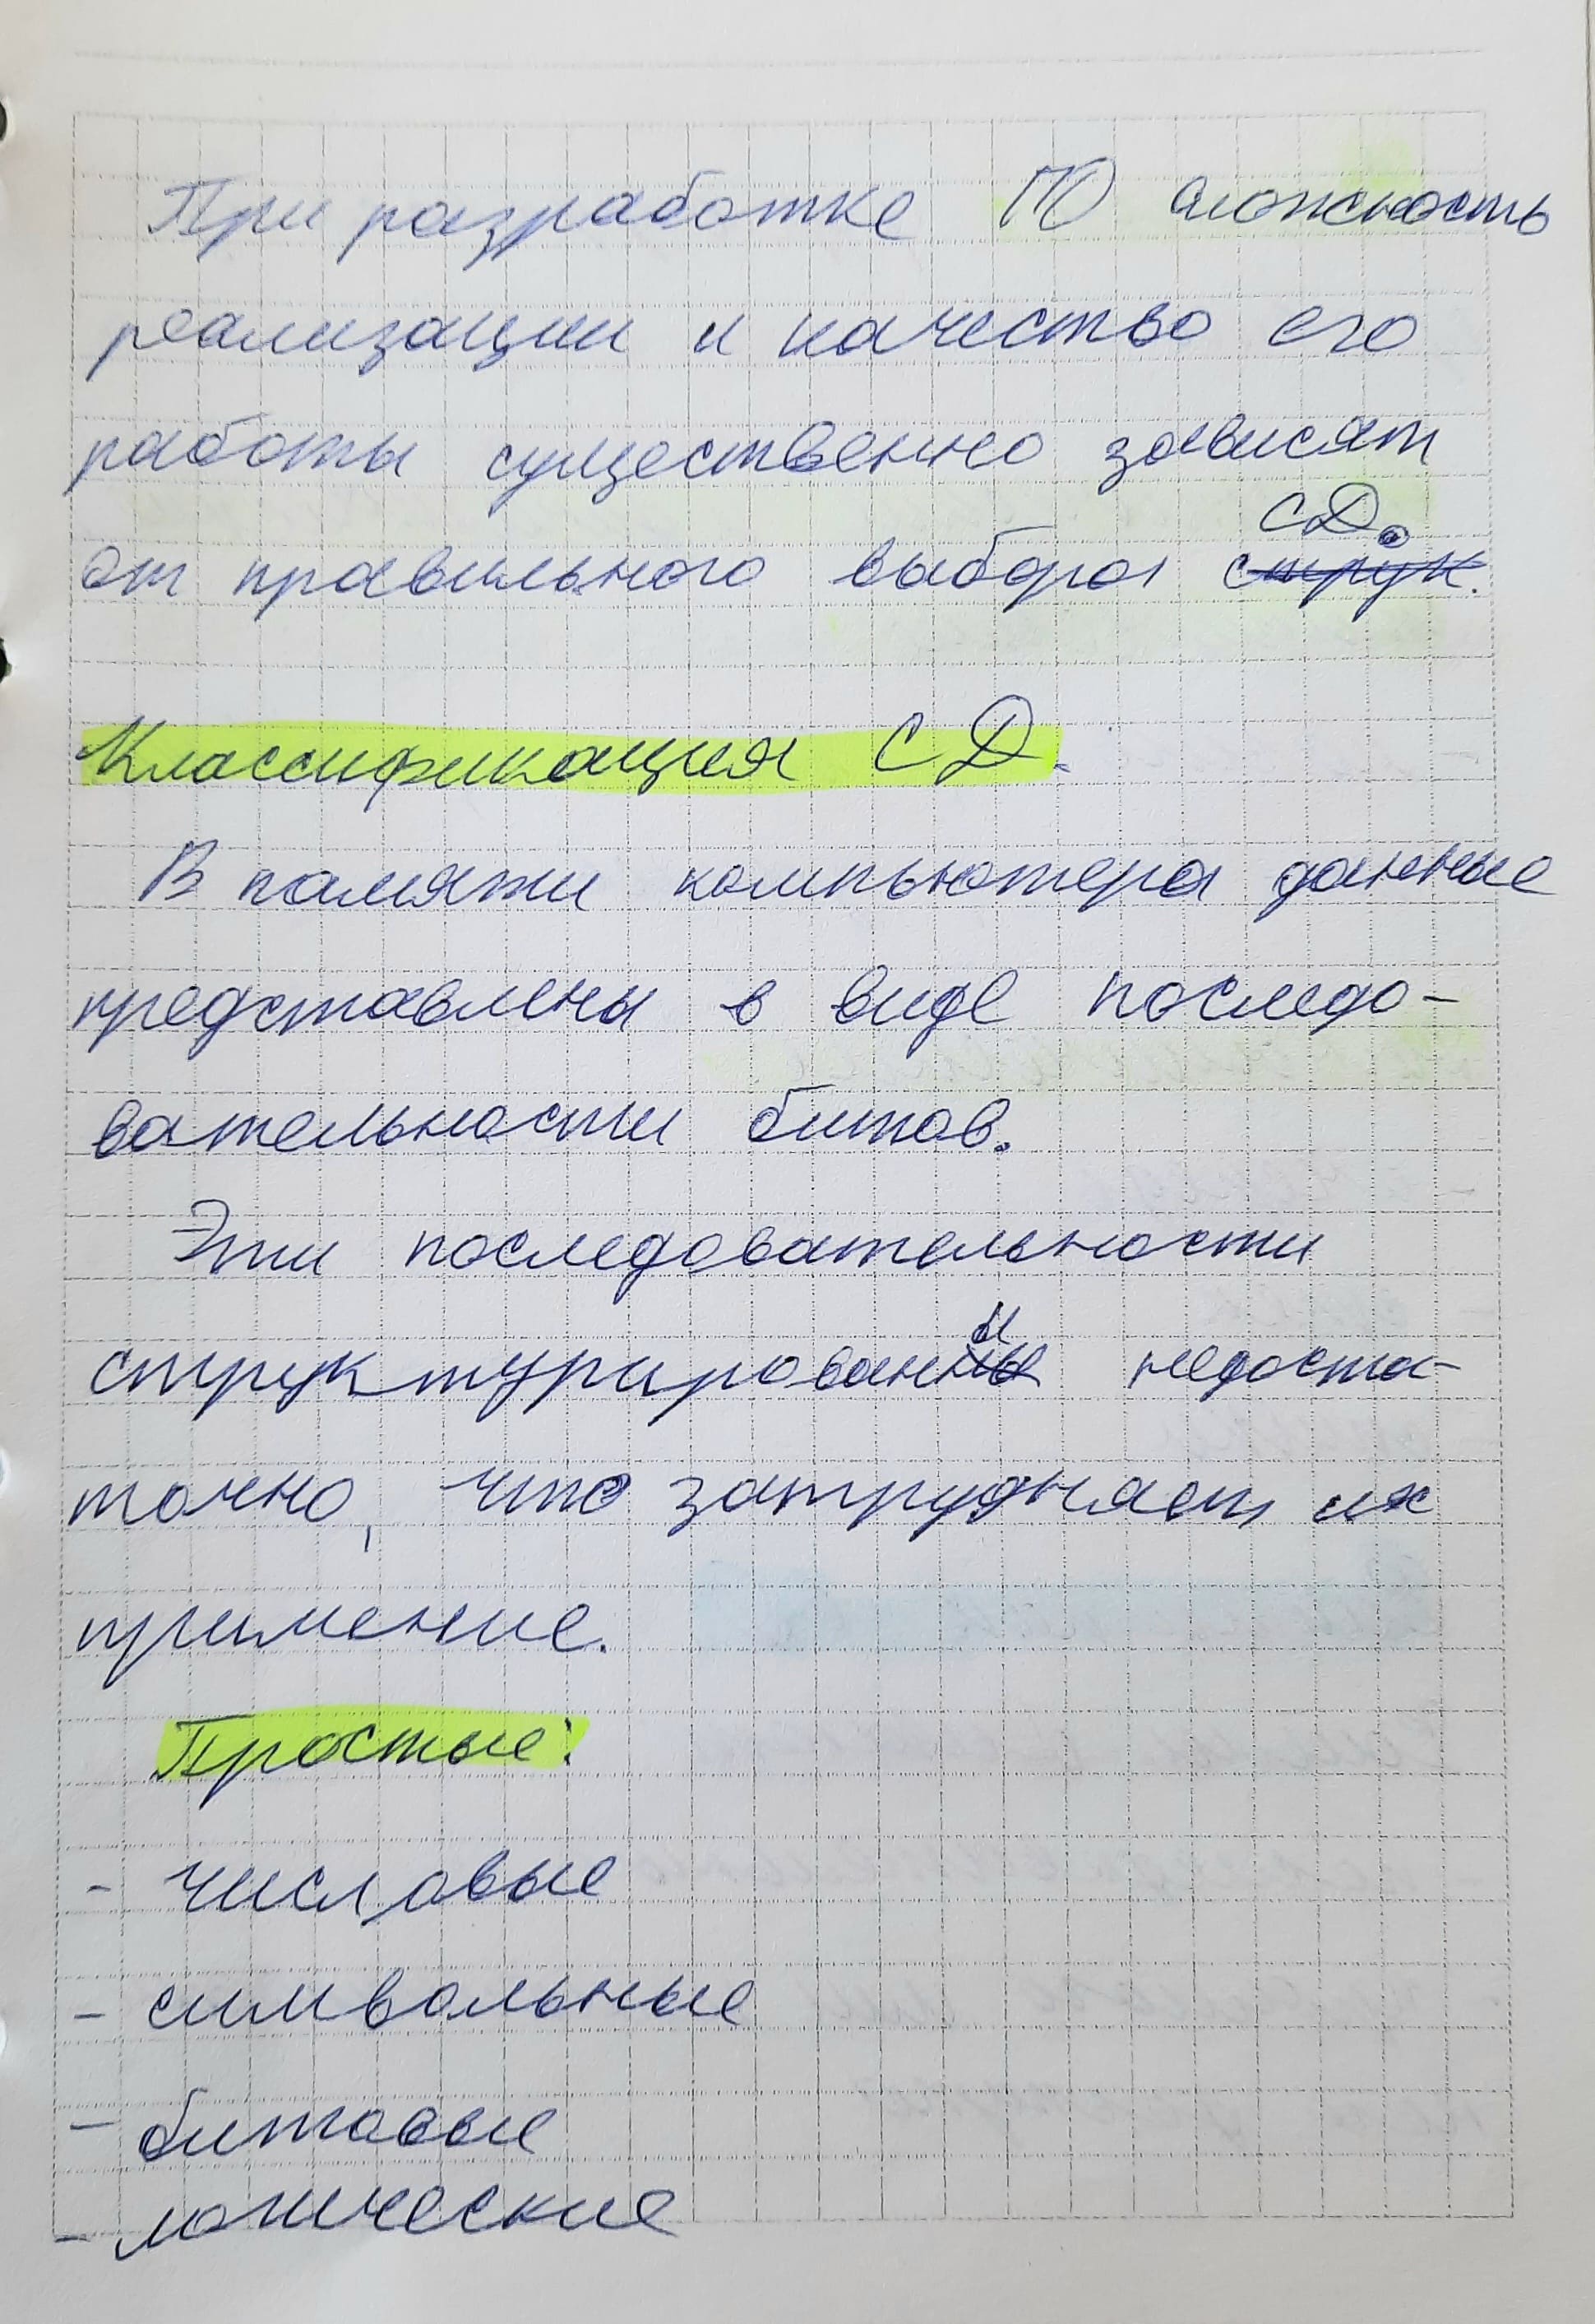 При разработке ПО сложность
реализации и качество его
работы существенно зависят
от правильного выбора СД.
Классификация СД.
В памяти компьютера данные
представлены в виде последо-
вательности битов.
Эти последовательности
структурированы недоста-
точно, что затрудняет их
применение.
Простые:
- числовые
- символьные
- битовые
- логические